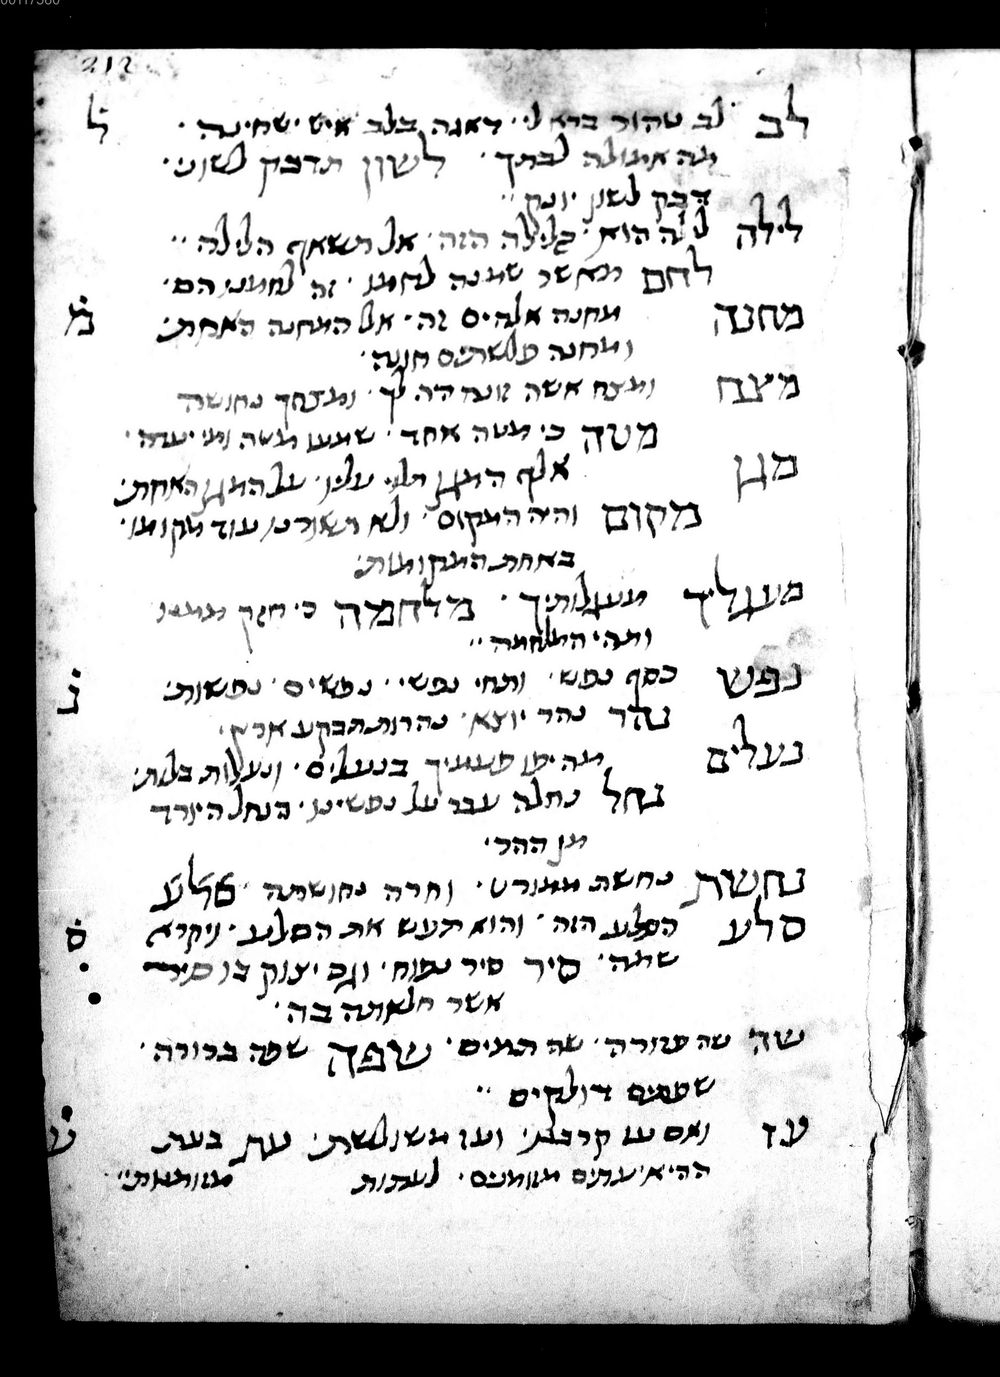 212
לב לב טהור ברא לי׳ דאגה בלב איש ישחינה׳ ל
מה אמולה לבתך׳ לשון תדבק לשוני׳
דבק לשון יונק׳׳
לילה לילה הוא׳ כלילה הזה׳ אל תשאף הלילה׳׳
לחם מאשר שמנה לחמו׳ זה לחמנו הם׳
מחנה מחנה אלהים זה׳ אל המחנה האחת׳ מ
ומחנה פלשתים חונה׳
מצח ומצח אשה זונה היה לך׳ ומצחך נחושה
מטה כי מטה אחד׳ שמעו מטה ומי יעדה׳
מגן אלף המגן תלוי עליו׳ על המגן האחת׳
מקום והיה המקום׳ ולא תשורנו עוד מקומו׳
באחת המקומות׳
מעגליך מעגלותיך׳ מלחמה כי חזק ממנו
ותהי המלחמה׳׳
נפש כסף נפש׳ ותחי נפשי׳ נפשים׳ נפשות׳ נ
נהר נהר יוצא׳ נהרות תבקע ארץ׳
נעלים מה יפו פעמיך בנעלים׳ ונעלות בלות׳
נחל נחלה עבר על נפשינו׳ בנחל היורד
מן ההר׳
נחשת נחשת ממורט׳ וחרה נחושתה׳ סלע
סלע הסלע הזה׳ והוא תעש את הסלע׳ ויקרא ס
שמה׳ סיר סיר נפוח׳ וגם יצוק בו סיר
אשר חלאתה בה׳
שה שה פזורה׳ שה תמים׳ שפה שפה ברורה׳
שפתים דולקים׳׳
עז ואם עז קרבנו׳ ועז משולשת׳ עת בעת ע
ההיא עתים מזומנים׳ לעתות מזומנות׳׳